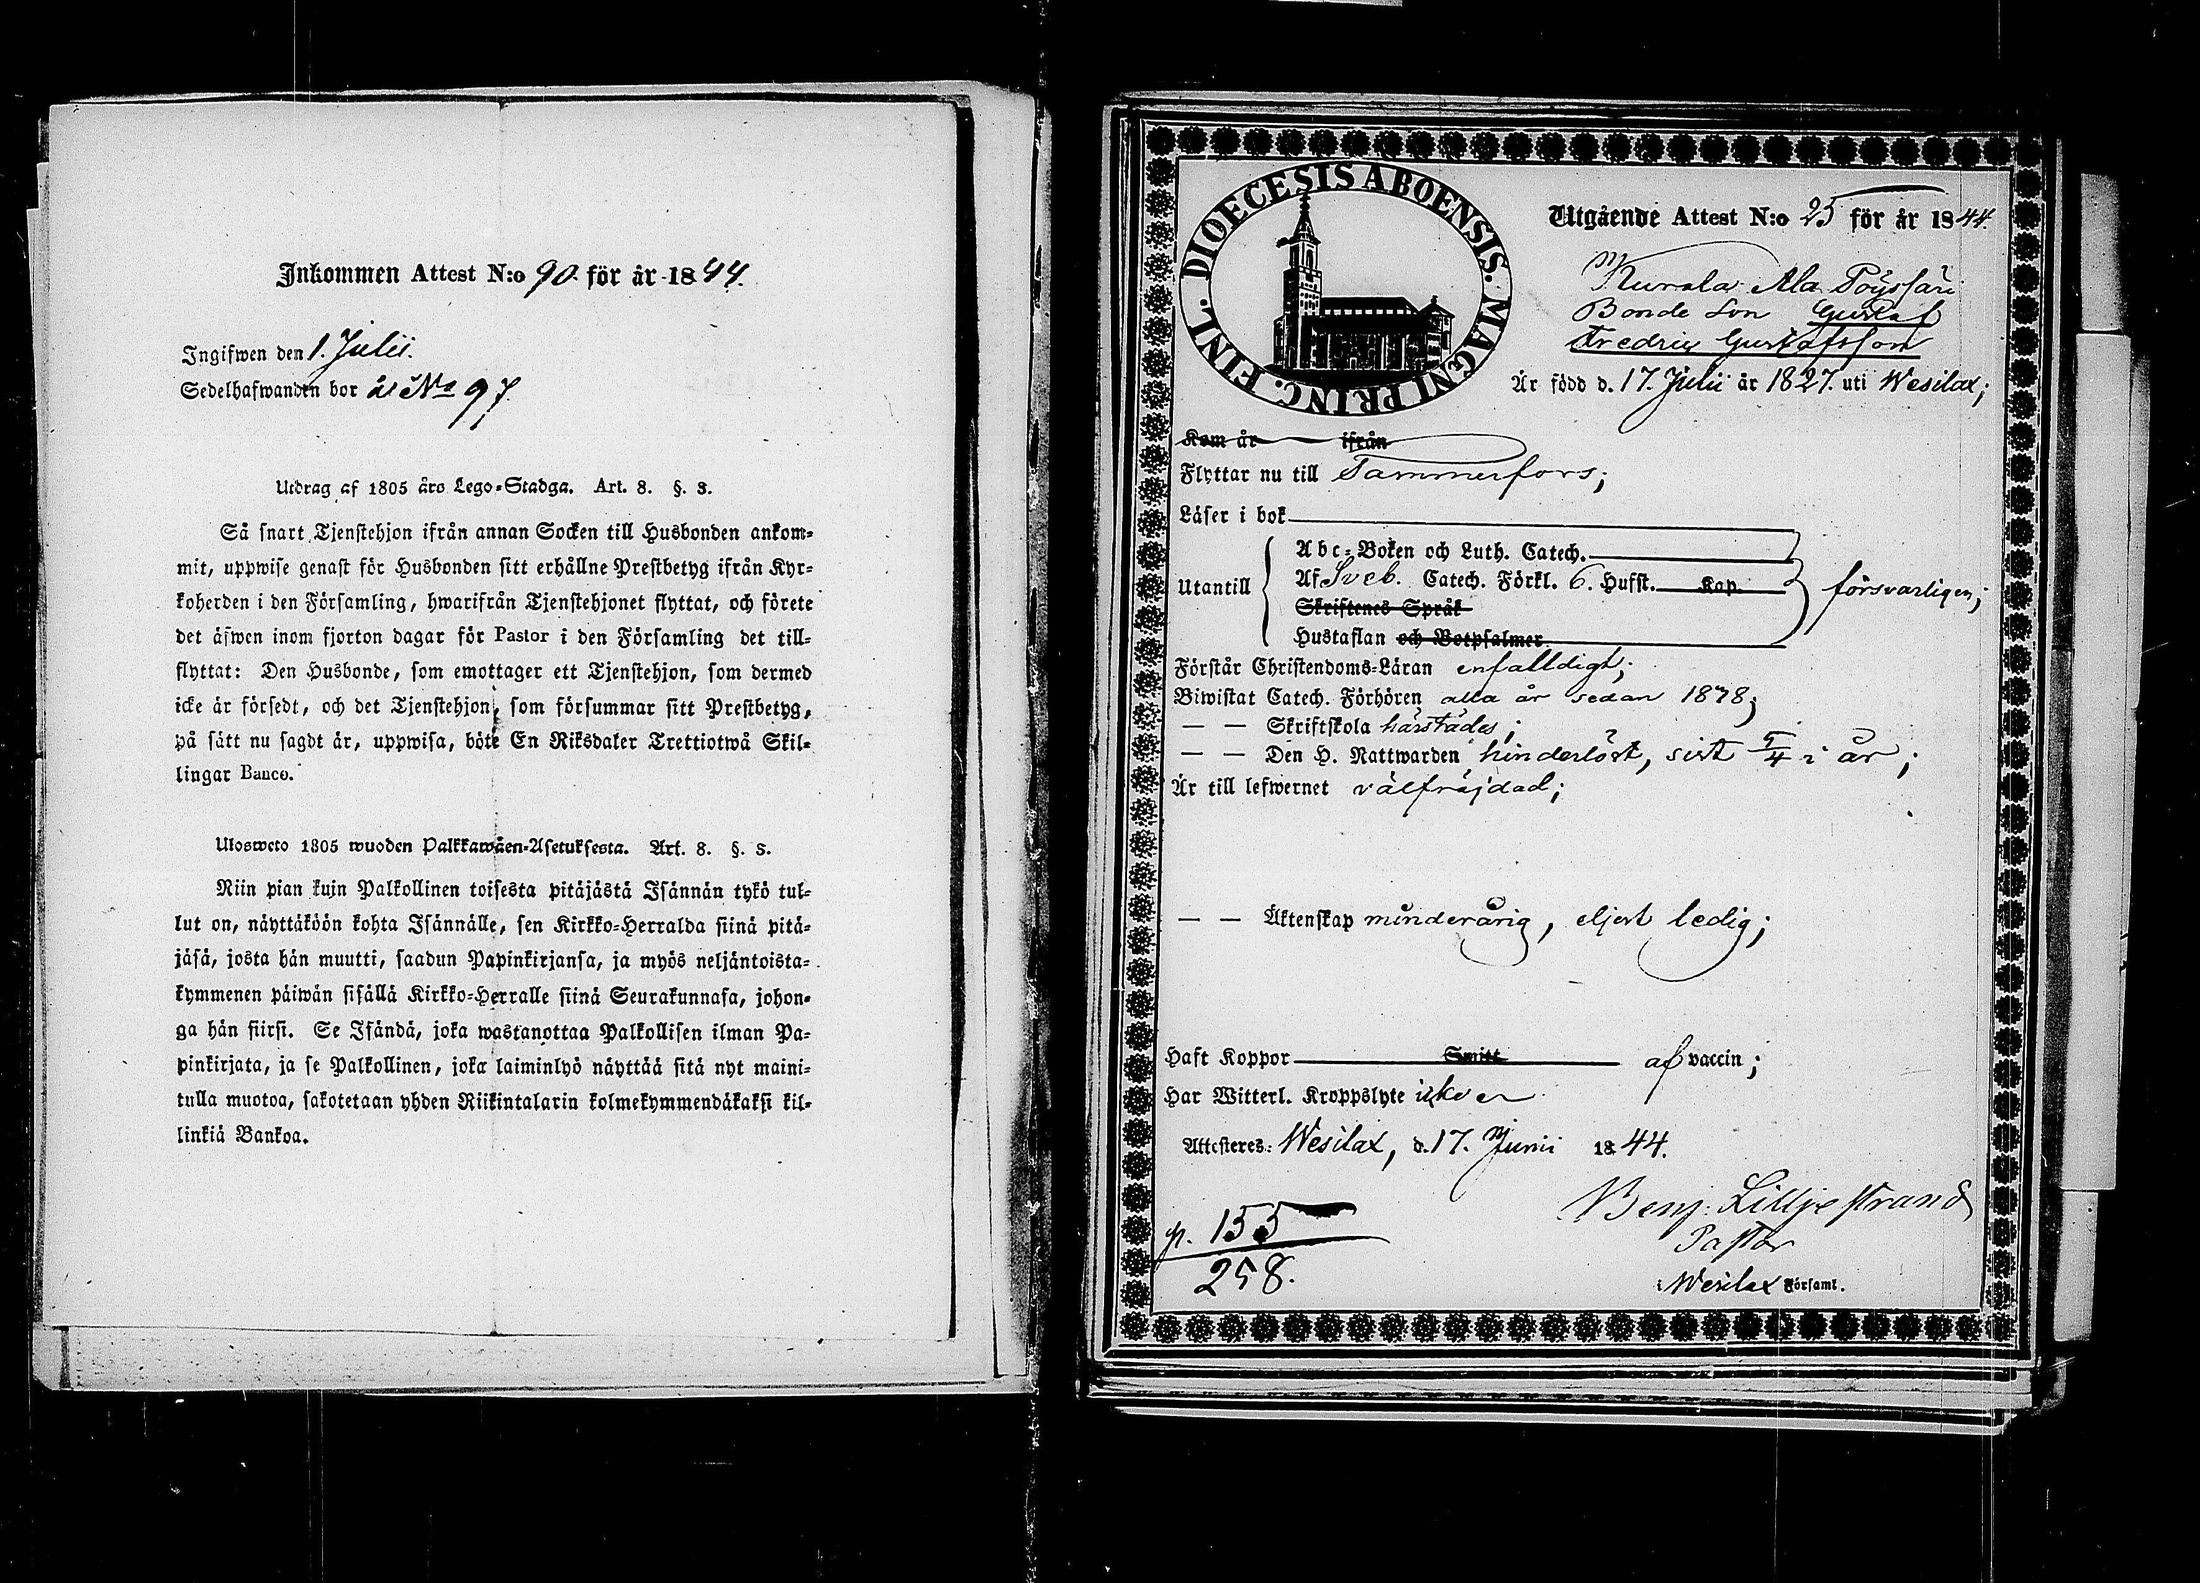 Inkommen Attest N:o 90 för år 1844.
Ingifwen den 1. Julii.
Sedelhafwanden bor å No 97
Utdrag af 1805 års Lego-Stadga. Art. 8. §. 3.
Så snart Tjenstehjon ifrån annan Socken till Husbonden ankom-
mit, uppwise genast för Husbonden sitt erhållne Prestbetyg ifrån Kyr-
koherden i den Församling, hwarifrån Tjenstehjonet flyttat, och förete
det äfwen inom fjorton dagar för Pastor i den Församling det till-
flyttat: Den Husbonde, som emottager ett Tjenstehjon, som dermed
icke är försedt, och det Tjenstehjon, som försummar sitt Prestbetyg,
på sätt nu sagdt är, uppwisa, böte En Riksdaler Trettiotwå Skil-
lingar Banco.
Ulosweto 1805 wuoden Palkkawäen-Asetuksesta. Art. 8. §. 3.
Niin pian kuin Palkollinen toisesta pitäjästä Isännän tykö tul-
lut on, näyttäköön kohta Isännälle, sen Kirkko-Herralda siinä pitä-
jäsä, josta hän muutti, saadun Papinkirjansa, ja myös neljäntoista-
kymmenen päiwän sisällä Kirkko-Herralle siinä Seurakunnasa, johon-
ga hän siirsi. Se Isändä, joka wastanottaa Palkollisen ilman Pa-
pinkirjata, ja se Palkollinen, joka laiminlyö näyttää sitä nyt maini-
tulla muotoa, sakotetaan yhden Riikintalarin kolmekymmendäkaksi kil-
linkiä Bankoa.
DIOECESIS ABOENSIS. MAGNI PRINC. FINL.
Utgående Attest N:o 25 för år 1844.
Kurala Ala Pöyssäri
Bonde Son Gustaf
Fredric Gustafsson
Är född d. 17. Julii år 1827. uti Wesilax;
Kom år ifrån
Flyttar nu till Tammerfors;
Läser i bok
Utantill
Abc-Boken och Luth. Catech.
Af Sveb. Catech. Förkl. 6. Hufst. Kap.
Skriftenes Språk
Hustaflan och Botpsalmer
försvarligen;
Förstår Christendoms-Läran enfalldigt;
Biwistat Catech. Förhören alla år sedan 1838;
— — Skriftskola härstädes;
— — Den H. Nattwarden hinderlöst, sist 5/4 i år;
Är till lefwernet välfräjdad;
— — Äktenskap minderårig, eljest ledig;
Haft Koppor Smitt af vaccin;
Har Witterl. Kroppslyte icke
Attesteres: Wesilax, d. 17. Junii 1844.
Benj: Lilljestrand
Pastor
Wesilax Församl.
p. 155
258.